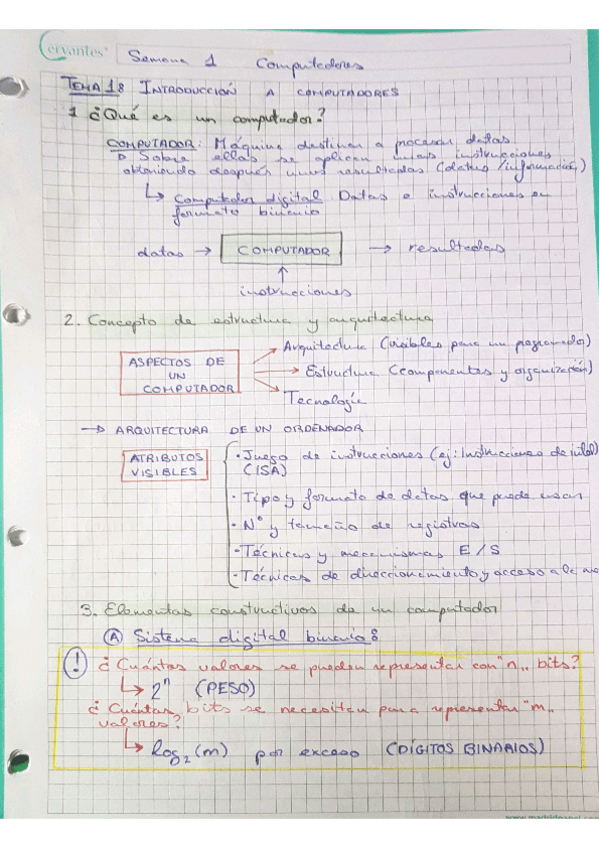 Cervantes
Semana 1 Computadores
TEMA 1: INTRODUCCIÓN A COMPUTADORES
1 ¿Qué es un computador?
COMPUTADOR: Máquina destinan a procesar datos.
Sobre ellos se aplican unas instrucciones
obteniendo después unos resultados (datos/información)
↳ Computador digital Datos e instrucciones en
formato binario
datos → COMPUTADOR → resultados
↑
instrucciones
2. Concepto de estructura y arquitectura
ASPECTOS DE UN COMPUTADOR
Arquitectura (visibles para un programador)
Estructura (componentes y organización)
Tecnología
→ ARQUITECTURA DE UN ORDENADOR
ATRIBUTOS VISIBLES
· Juego de instrucciones (ej: Instrucciones de intel)
(ISA)
· Tipo y formato de datos que puede usar
· Nº y tamaño de registros
· Técnicas y mecanismos E/S
· Técnicas de direccionamiento y acceso a la
3. Elementos constructivos de un computador
Ⓐ Sistema digital binario:
! ¿Cuántos valores se pueden representar con "n" bits?
↳ 2ⁿ (PESO)
¿Cuántos bits se necesitan para representar "m"
valores?
↳ log₂(m) por exceso (DÍGITOS BINARIOS)